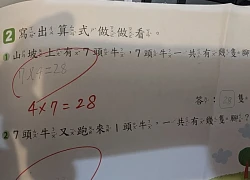 2 寫出算式做做看。
① 山坡上有7頭牛,7頭牛一共有幾隻腳?
7×4=28
4×7=28
答:28隻。
② 7頭牛又跑來1頭牛,一共有幾隻腳?